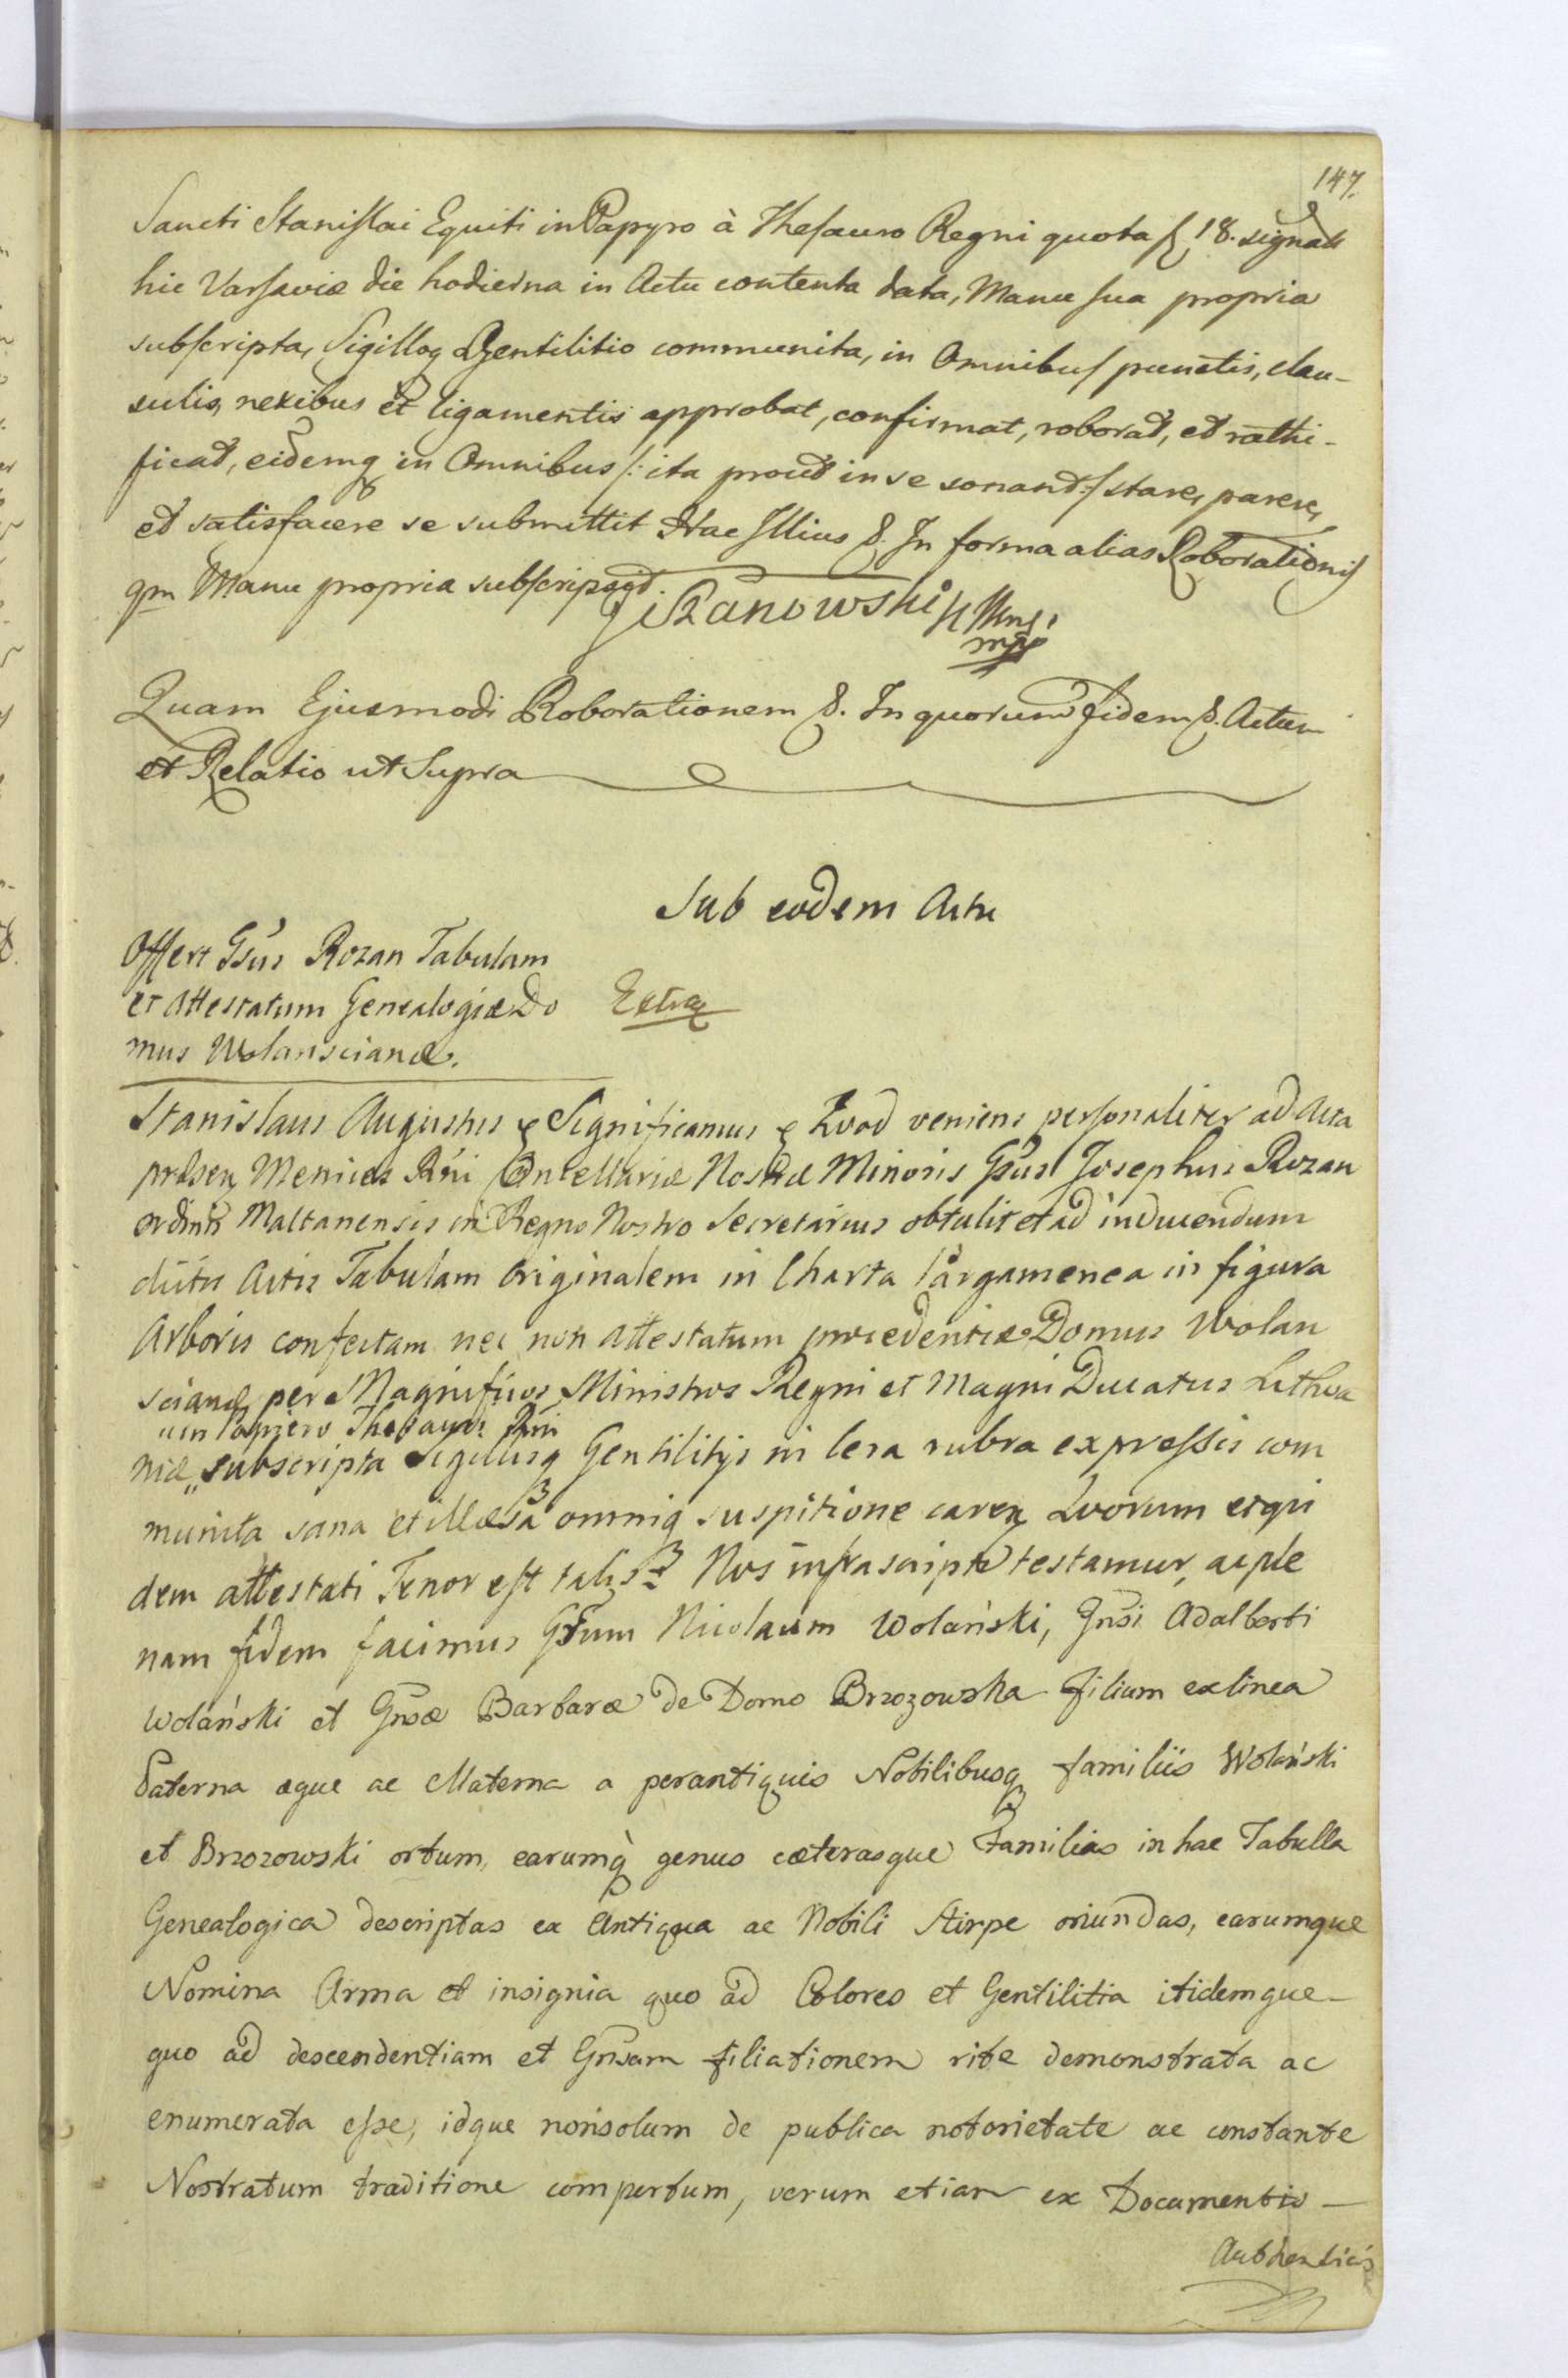 147.
Sancti Stanislai Equiti in Papyro à Thesauro Regni quota fl 18. signata
hic Varsaviæ die hodierna in Actu contenta data, Manu sua propria
subscripta, Sigilloq Gentilitio communita, in Omnibus punctis, clau-
sulis, nexibus et ligamentis approbat, confirmat, roborat, et rathi-
ficat, eidemq in Omnibus /: ita prout in se sonant :/ stare, parere,
et satisfacere se submittit Hac Illius &. In forma alias Roborationis
qm Manu propria subscripsit.
mpp
Quam Ejusmodi Roborationem &. In quorum fidem &. Actum
et Relatio ut Supra
Sub eodem Actu
Offert Gsus Rozan Tabulam
et Attestatum Genealogiæ Do
mus Wolanscianæ.
Extraq
Stanislaus Augustus & Significamus & Quod veniens personaliter ad Acta
præsen Metrices Rni Cancellariæ Nostræ Minoris Gsus Josephus Rozan
ordinis Maltanensis in Regno Nostro Secretarius obtulit et ad inducendum
dictis Actis Tabulam Originalem in Charta Pargamenea in figura
Arboris confectam nec non attestatum procedentiæ Domus Wolan
scianæ per Magnificos Ministros Regni et Magni Ducatus Lithva
"in Papiero Thesauri Rni
niæ „ subscripta Sigillisq Gentilitijs in cera rubra expressis com
munita sana et illæsa omniq suspitione caren Quorum et qui
dem attestati Tenor est talis Nos infrascripti testamur, ac ple
nam fidem facimus Gsum Nicolaum Wolański, Gnsi Adalberti
Wolański et Gnsæ Barbaræ de Domo Brzozowska filium ex linea
Paterna æque ac Materna a perantiquis Nobilibusq familiis Wolański
et Brzozowski ortum, earumq̀ genus cæterasque Familias in hac Tabella
Genealogica descriptas ex Antiqua ac Nobili Stirpe oriundas, earumque
Nomina Arma et insignia quo ad Colores et Gentilitia itidemque-
quo ad descendentiam et Gnsam filiationem rite demonstrata ac
enumerata esse, idque non solum de publica notorietate ac constante
Nostratum traditione compertum, verum etiam ex Documentis –
Authenticis